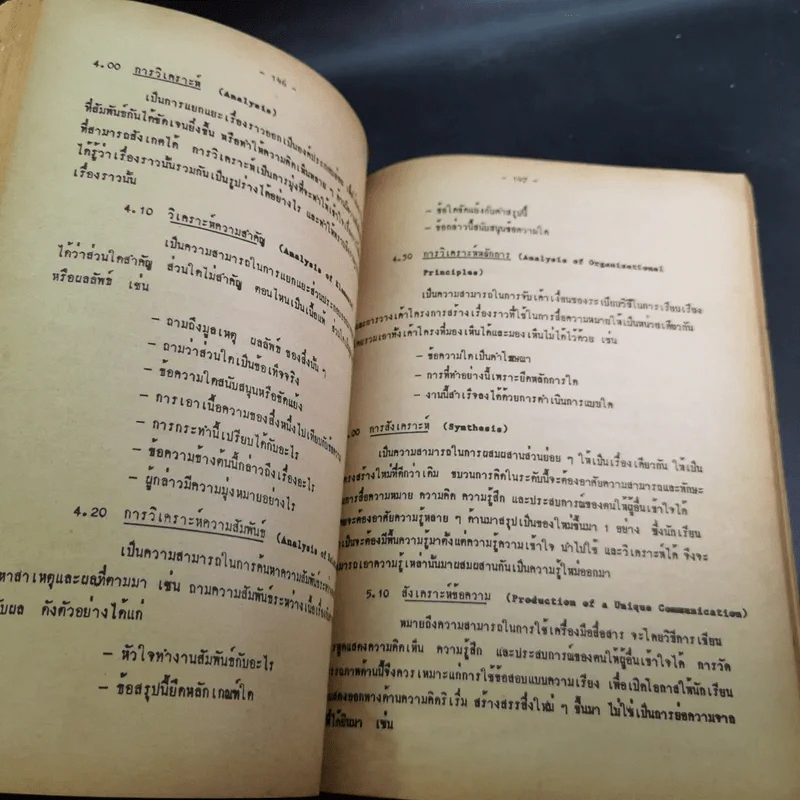 - 146 -
4.00 การวิเคราะห์ (Analysis)
เป็นการแยกแยะเรื่องราวออกเป็นองค์ประกอบย่อย
ที่สัมพันธ์กันได้ชัดเจนยิ่งขึ้น หรือทำให้ความคิดเห็นหลาย ๆ ด้าน
ที่สามารถสังเกตได้ การวิเคราะห์เป็นการมุ่งที่จะทำให้เข้าใจ
ได้รู้ว่าเรื่องราวนั้นรวมกันเป็นรูปร่างได้อย่างไร และทำให้ทราบถึง
เรื่องราวนั้น
4.10 วิเคราะห์ความสำคัญ (Analysis of
เป็นความสามารถในการแยกแยะส่วนประกอบ
ได้ว่าส่วนใดสำคัญ ส่วนใดไม่สำคัญ ตอนไหนเป็นเนื้อแท้
หรือผลลัพธ์ เช่น
- ถามถึงมูลเหตุ ผลลัพธ์ ของสิ่งนั้น ๆ
- ถามว่าส่วนใดเป็นข้อเท็จจริง
- ข้อความใดสนับสนุนหรือขัดแย้ง
- การเอาเนื้อความของสิ่งหนึ่งไปเทียบกับข้อความ
- การกระทำนี้เปรียบได้กับอะไร
- ข้อความข้างต้นนี้กล่าวถึงเรื่องอะไร
- ผู้กล่าวมีความมุ่งหมายอย่างไร
4.20 การวิเคราะห์ความสัมพันธ์ (Analysis of
เป็นความสามารถในการค้นหาความสัมพันธ์ระหว่าง
หาสาเหตุและผลที่ตามมา เช่น ถามความสัมพันธ์ระหว่างเนื้อเรื่อง
ับผล ดังตัวอย่างได้แก่
- หัวใจทำงานสัมพันธ์กับอะไร
- ข้อสรุปนี้ยึดหลักเกณฑ์ใด
- 147 -
- ข้อใดขัดแย้งกับคำสรุปนี้
- ข้อกล่าวนี้สนับสนุนข้อความใด
4.30 การวิเคราะห์หลักการ (Analysis of Organisational
Principles)
เป็นความสามารถในการจับเค้าเงื่อนของระเบียบวิธีในการเรียบเรียง
และการวางเค้าโครงการสร้างเรื่องราวที่ใช้ในการสื่อความหมายให้เป็นหน่วยเดียวกัน
รวมเอาทั้งเค้าโครงที่มองเห็นได้และมองเห็นไม่ได้ไว้ด้วย เช่น
- ข้อความใดเป็นคำโฆษณา
- การที่ทำอย่างนี้เพราะยึดหลักการใด
- งานนี้สำเร็จลงได้ด้วยการดำเนินการแบบใด
.00 การสังเคราะห์ (Synthesis)
เป็นความสามารถในการผสมผสานส่วนย่อย ๆ ให้เป็นเรื่องเดียวกัน ให้เป็น
ครงสร้างใหม่ที่ดีกว่าเดิม ขบวนการคิดในระดับนี้จะต้องอาศัยความสามารถและทักษะ
การสื่อความหมาย ความคิด ความรู้สึก และประสบการณ์ของตนให้ผู้อื่นเข้าใจได้
จะต้องอาศัยความรู้หลาย ๆ ด้านมาสรุปเป็นของใหม่ขึ้นมา 1 อย่าง ซึ่งนักเรียน
เป็นจะต้องมีพื้นความรู้มาตั้งแต่ความรู้ความเข้าใจ นำไปใช้ และวิเคราะห์ได้ จึงจะ
มารถเอาความรู้เหล่านั้นมาผสมผสานกันเป็นความรู้ใหม่ออกมา
5.10 สังเคราะห์ข้อความ (Production of a Unique Communication)
หมายถึงความสามารถในการใช้เครื่องมือสื่อสาร จะโดยวิธีการเขียน
พูดแสดงความคิดเห็น ความรู้สึก และประสบการณ์ของตนให้ผู้อื่นเข้าใจได้ การวัด
รถภาพด้านนี้จึงควรเหมาะแก่การใช้ข้อสอบแบบความเรียง เพื่อเปิดโอกาสให้นักเรียน
แสดงออกทางด้านความคิดริเริ่ม สร้างสรรสิ่งใหม่ ๆ ขึ้นมา ไม่ใช่เป็นการย่อความจาก
ที่ได้ยินมา เช่น